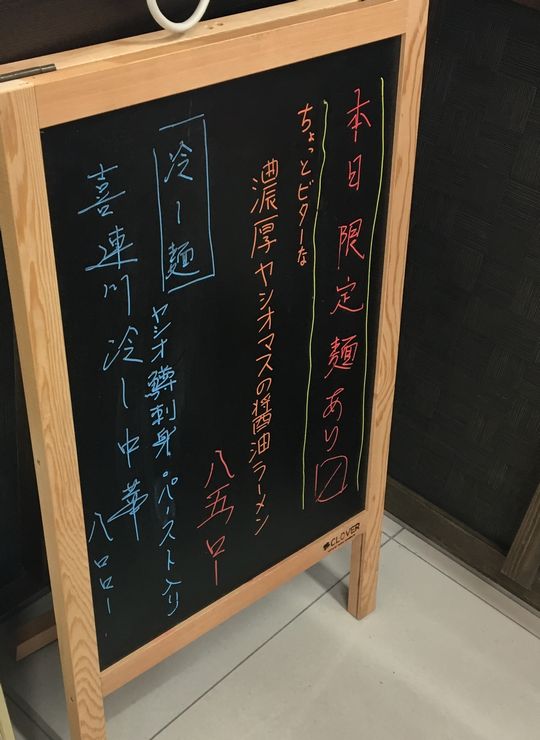 本日限定麺あり〼
ちょっとビターな
濃厚ヤシオマスの醤油ラーメン
八五ロー
冷し麺
ヤシオ鱒刺身・ペースト入り
喜連川冷し中華
八ロロー
CLOVER